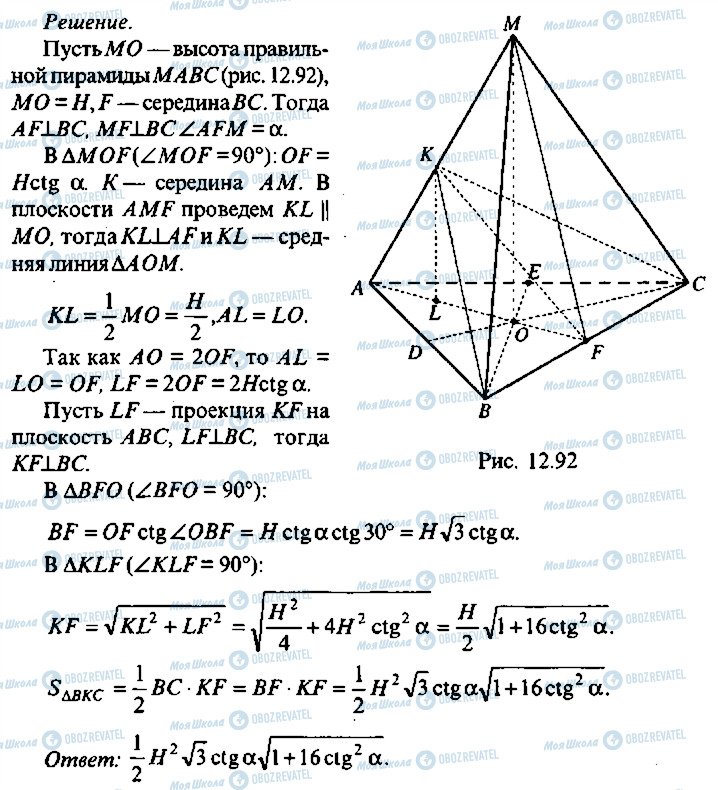 Решение.
Пусть MO — высота правиль-
ной пирамиды MABC (рис. 12.92),
MO = H, F — середина BC. Тогда
AF⊥BC, MF⊥BC ∠AFM = α.
В ΔMOF (∠MOF = 90°): OF =
Hctg α. K — середина AM. В
плоскости AMF проведем KL ||
MO, тогда KL⊥AF и KL — сред-
няя линия ΔAOM.
KL = 1/2 MO = H/2, AL = LO.
Так как AO = 2OF, то AL =
LO = OF, LF = 2OF = 2Hctg α.
Пусть LF — проекция KF на
плоскость ABC, LF⊥BC, тогда
KF⊥BC.
M
K
A
E
C
L
O
D
F
B
Рис. 12.92
В ΔBFO (∠BFO = 90°):
BF = OF ctg∠OBF = H ctgα ctg30° = H√3 ctgα.
В ΔKLF (∠KLF = 90°):
KF = √(KL² + LF²) = √(H²/4 + 4H² ctg² α) = H/2 √(1 + 16ctg² α).
S_ΔBKC = 1/2 BC · KF = BF · KF = 1/2 H² √3 ctgα√(1 + 16ctg² α).
Ответ: 1/2 H² √3 ctgα√(1 + 16ctg² α).
Моя Школа OBOZREVATEL